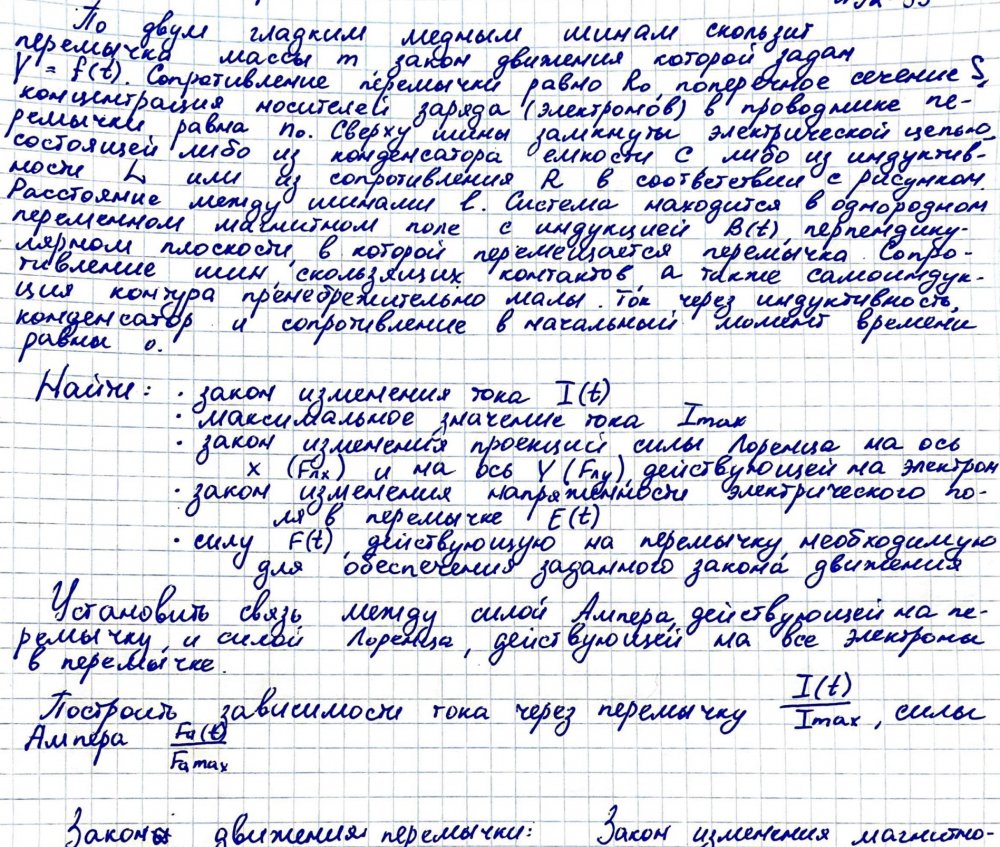 По двум гладким медным шинам скользит
перемычка массы m закон движения которой задан
Y = f(t). Сопротивление перемычки равно R₀, поперечное сечение S,
концентрация носителей заряда (электронов) в проводнике пе-
ремычки равна n₀. Сверху шины замкнуты электрической цепью,
состоящей либо из конденсатора емкости C либо из индуктив-
ности L или из сопротивления R в соответствии с рисунком.
Расстояние между шинами l. Система находится в однородном
переменном магнитном поле с индукцией B(t), перпендику-
лярном плоскости, в которой перемещается перемычка. Сопро-
тивление шин, скользящих контактов а также самоиндук-
ция контура пренебрежительно малы. Ток через индуктивность,
конденсатор и сопротивление в начальный момент времени
равны 0.
Найти: · закон изменения тока I(t)
· максимальное значение тока Imax
· закон изменения проекций силы Лоренца на ось
x (Fлx) и на ось Y (Fлy), действующей на электрон
· закон изменения напряженности электрического по-
ля в перемычке E(t)
· силу F(t), действующую на перемычку, необходимую
для обеспечения заданного закона движения
Установить связь между силой Ампера, действующей на пе-
ремычку, и силой Лоренца, действующей на все электроны
в перемычке.
Построить зависимости тока через перемычку I(t)/Imax, силы
Ампера Fa(t)/Fa max
Закон движения перемычки: Закон изменения магнитно-